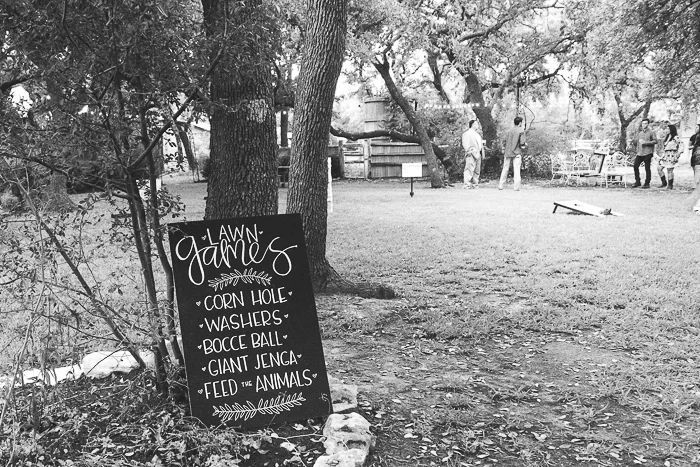 LAWN
games
CORN HOLE
WASHERS
BOCCE BALL
GIANT JENGA
FEED THE ANIMALS